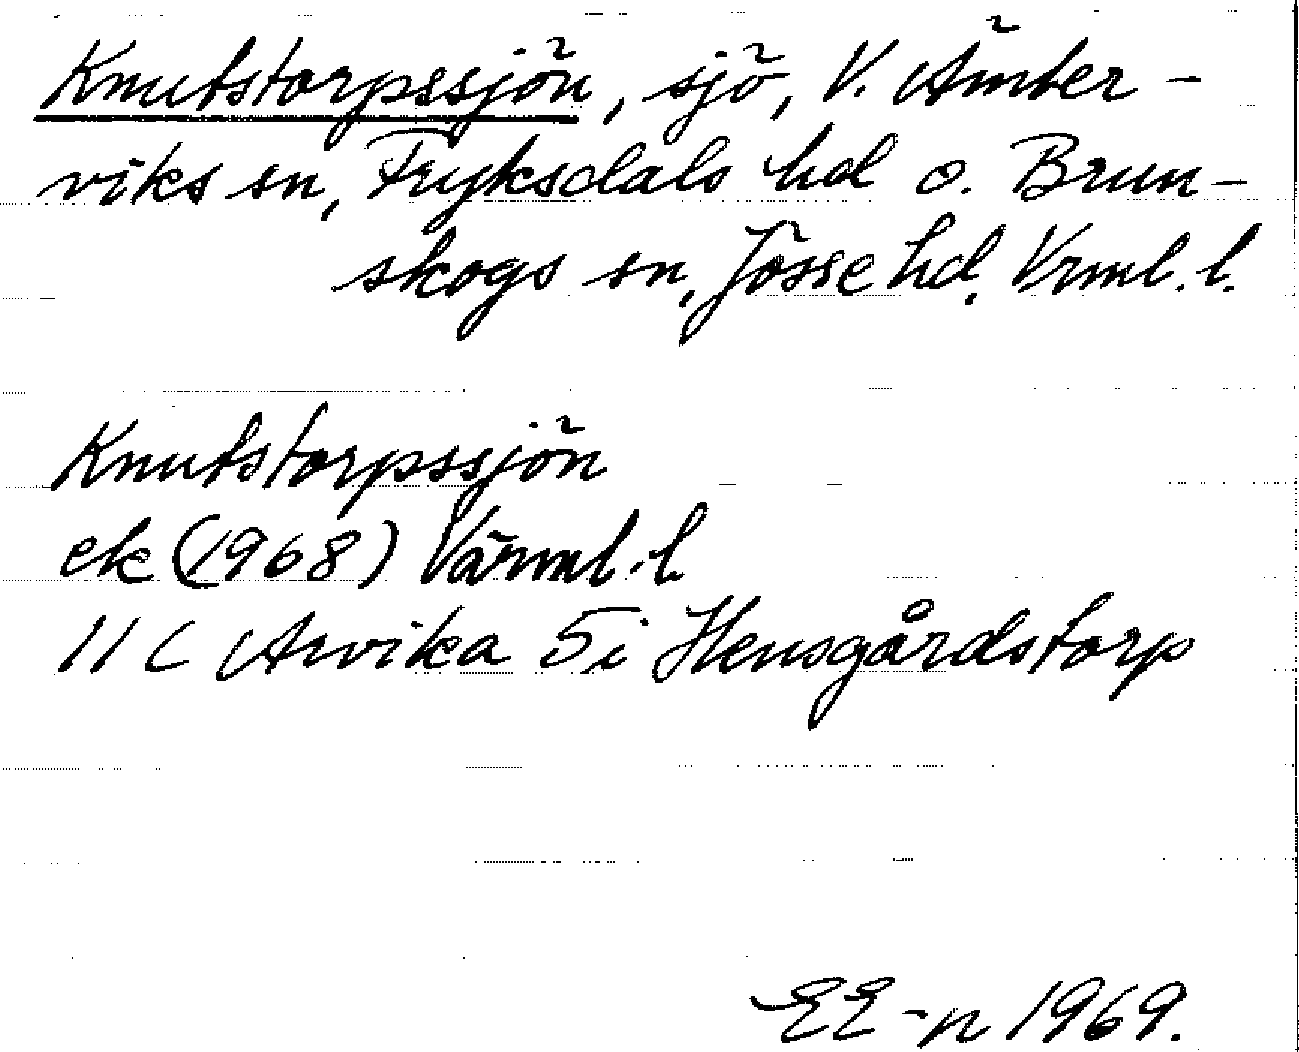 Knutstorpssjön, sjö, V. Ämter-
viks sn, Fryksdals hd o. Brun-
skogs sn, Jösse hd. Vrml. l.
Knutstorpssjön
ek (1968) Värml. l.
11 C Arvika 5i Hensgårdstorp
EE-n 1969.